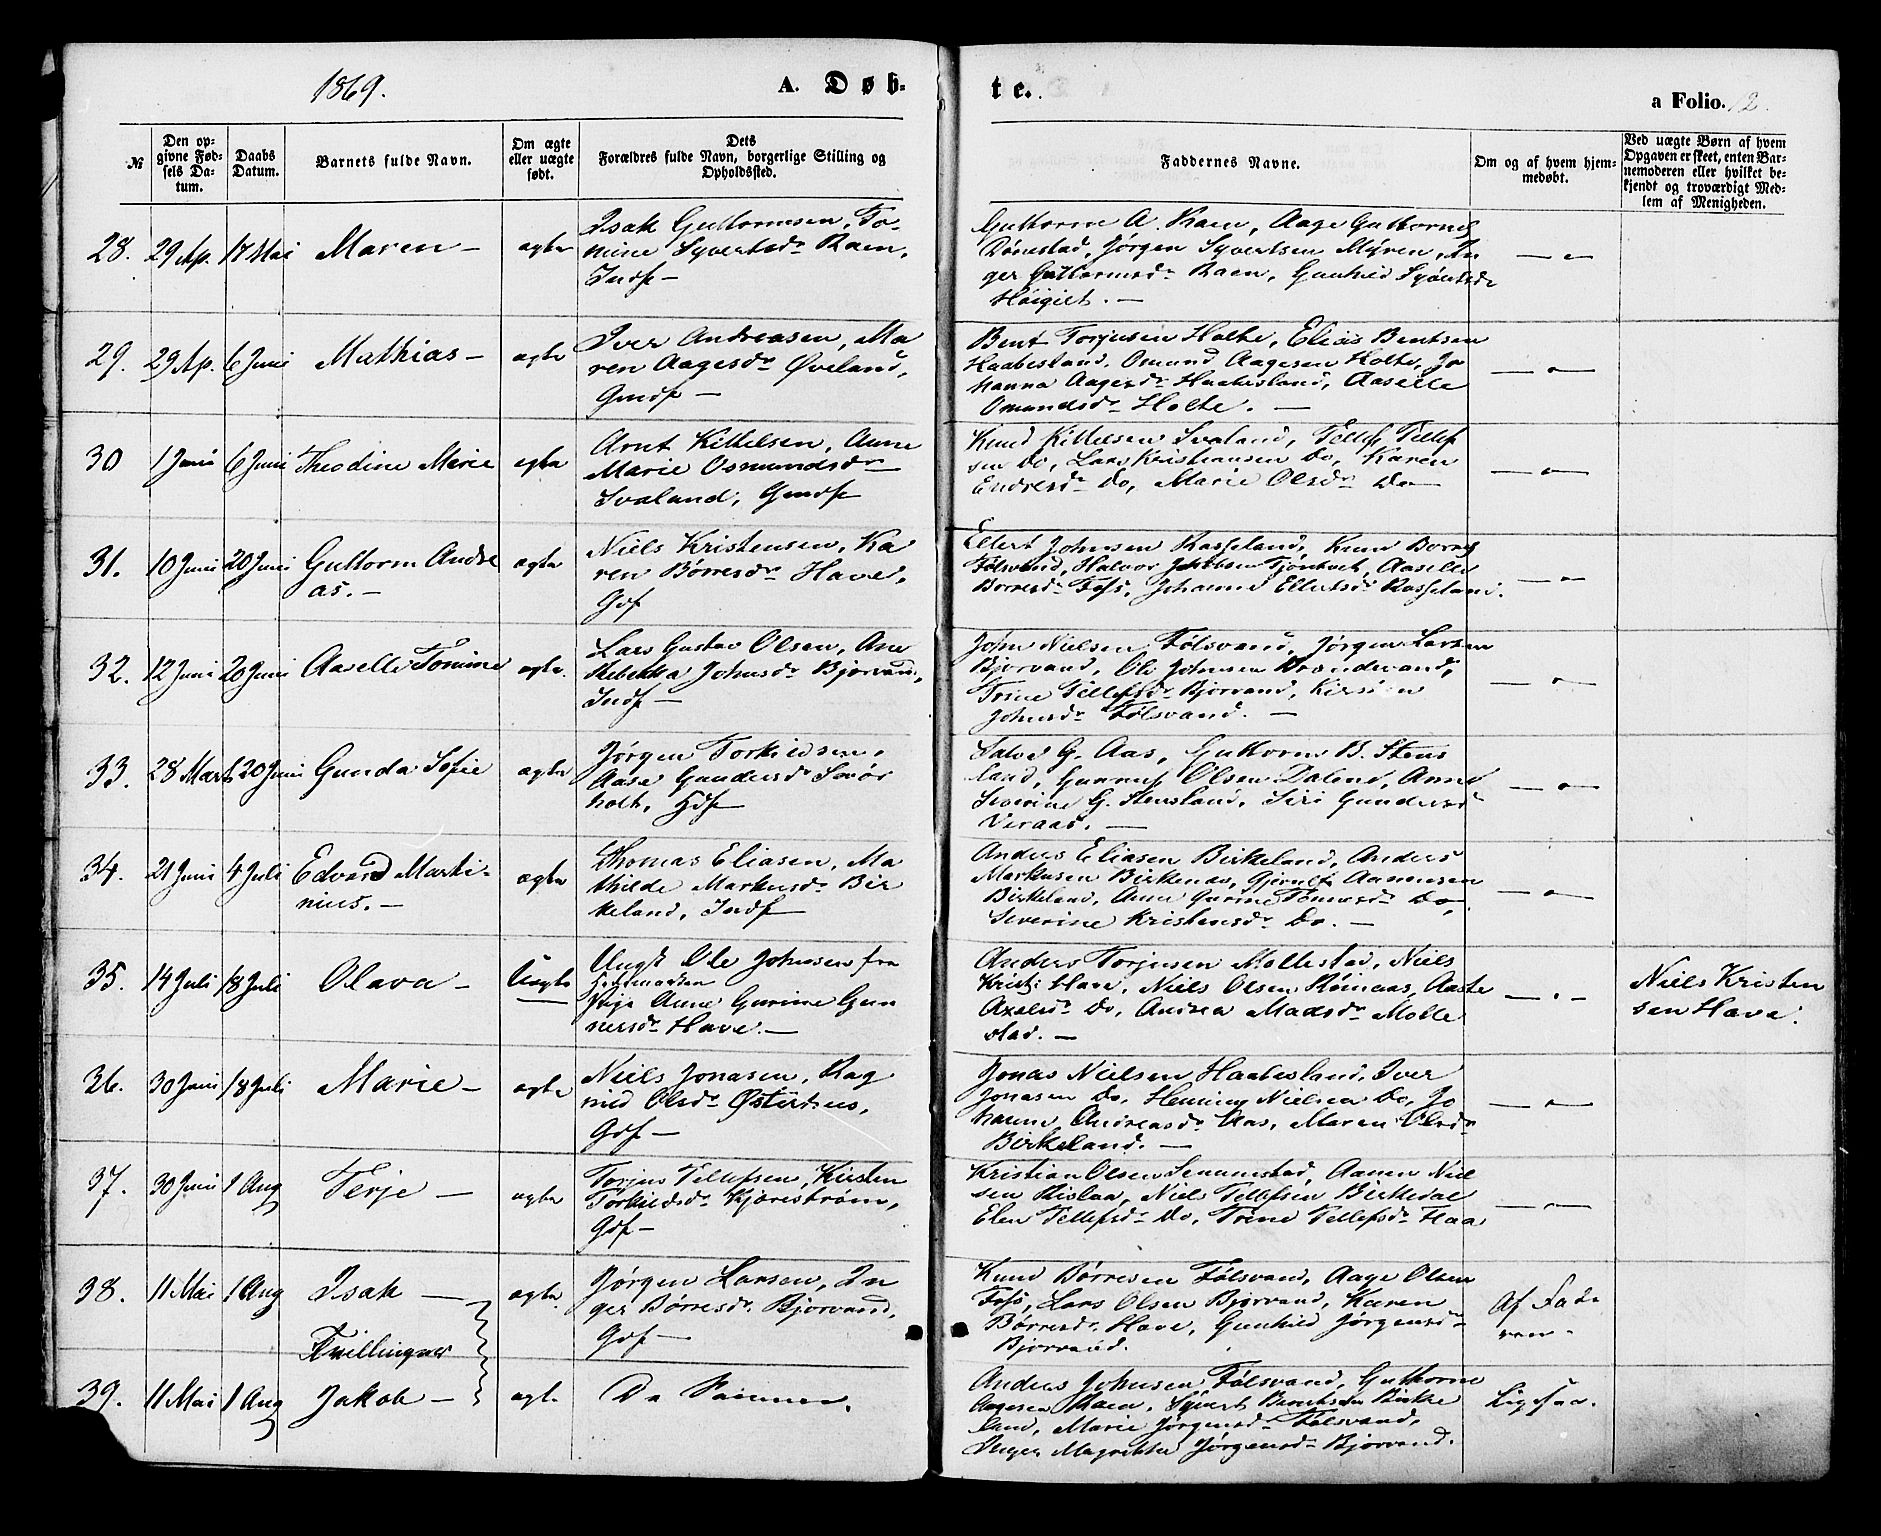 1869.
A. Døb-
te.
a Folio. 12.
№
Den op-
givne Fød-
sels Da-
tum.
Daabs
Datum.
Barnets fulde Navn.
Om ægte
eller uægte
født.
Dets
Forældres fulde Navn, borgerlige Stilling og
Opholdssted.
Faddernes Navne.
Om og af hvem hjem-
medøbt.
Ved uægte Børn af hvem
Opgaven er skeet, enten Bar-
nemoderen eller hvilket be-
kjendt og troværdigt Med-
lem af Menigheden.
28. 29 Ap. 17 Mai Maren – ægte
Isak Guttormsen, To-
mine Syvertsdr Raen,
Indf –
Guttorm A. Raen, Aage Guttorms
Rønestad, Jørgen Syvertsen Myren, In
ger Guttormsdr Raen, Gunhild
Høigilt. –
29. 29 Ap. 6 Juni Mathias – ægte
Iver Andreasen, Ma
ren Aagesdr Øveland,
Gmdf –
Bent Torjusen Holte, Elias Bentsen
Haabesland, Omund Aagesen Holte, Jo
hanna Aagesdr Haabesland, Aaselle
Omundsdr Holte. –
30 1 Juni 6 Juni Theodine Marie ægte
Arnt Kittelsen, Anne
Marie Osmundsdr
Svaland, Gmdf
Knud Kittelsen Svaland, Tellef Tellef
sen Do, Lars Kristiansen Do, Karen
Endresdr Do, Marie Olsdr Do
31. 10 Juni 20 Juni Guttorm Andre
as. – ægte
Niels Kristensen, Ka
ren Børresdr Have,
Gdf
Ellert Johnsen Rosseland, Knud Borres
Følsvand, Halvor Jacobsen, Aaselle
Borresdr Foss, Johanne Ellertsdr Rosseland.
32. 12 Juni 20 Juni Aaselle Tomine ægte.
Lars Gustav Olsen, Ane
Rebekka Johnsdr Bjorvand,
Indf –
John Nielsen Følsvand, Jørgen Larsen
Bjorvand, Ole Johnsen Strandevand,
Trine Tellefsdr Bjorvand, Kirsten
Johnsdr Følsvand. –
33. 28 Marts 20 Juni Gunda Sofie ægte
Jørgen Torkildsen,
Aase Gundersdr Smør
holt, Gdf
Salve G. Aas, Guttorm B. Stens
land, Olsen Dalene, Anne
Severine G. Stensland, Siri Gundersdr
Veraas. –
34. 21 Juni 4 Juli Edvard Marti-
nius. – ægte
Thomas Eliasen, Ma
thilde Markusdr Bir
keland, Indf
Anders Eliasen Birkeland, Anders
Markusen Birkenes, Aanensen
Birkeland, Anne Gurine Tønnesdr Do,
Severine Kristensdr Do. –
35. 14 Juli 18 Juli Olava – Uægte
Ungk Ole Johnsen fra
Pige Anne Gurine Gun
nersdr Have. –
Anders Torjusen Mollestad, Niels
Krist: Have, Niels Olsen Røinaas, Aaste
Axelsdr Do, Andrea Madsdr Molle
stad. –
Niels Kristen
sen Have.
36. 30 Juni 18 Juli Marie – ægte
Niels Jonasen, Rag
nild Olsdr Østerhus,
Gdf –
Jonas Nielsen Haabesland, Iver
Jonasen Do, Henning Nielsen Do, Jo
hanne Andreasdr Aas, Maren Olsdr
Birkeland. –
37. 30 Juni 1 Aug Terje – ægte
Torjus Tellefsen, Kirsten
Torkildsdr Kjærestrøm,
Gdf –
Kristian Olsen Senumstad, Aanen Niel
sen Rislaa, Niels Tellefsen Birkedal
Elen Tellefsdr Do, Trine Tellefsdr Flaa
38. 11 Mai 1 Aug Isak – ægte.
Tvillinger
Jørgen Larsen, In
ger Børresdr Bjorvand,
Gdf –
Knud Børresen Følsvand, Aage Olsen
Foss, Lars Olsen Bjorvand, Karen
Børresdr Have, Gunhild Jørgensdr
Bjorvand.
Af Fade
ren.
39. 11 Mai 1 Aug Jakob – ægt.
De Samme.
Anders Johnsen Følsvand, Guttorm
Aagesen Raen, Syvert Berntsen Birke
land, Marie Jørgensdr Følsvand,
Inger Magrethe Jørgensdr Bjorvand.
Ligesaa.